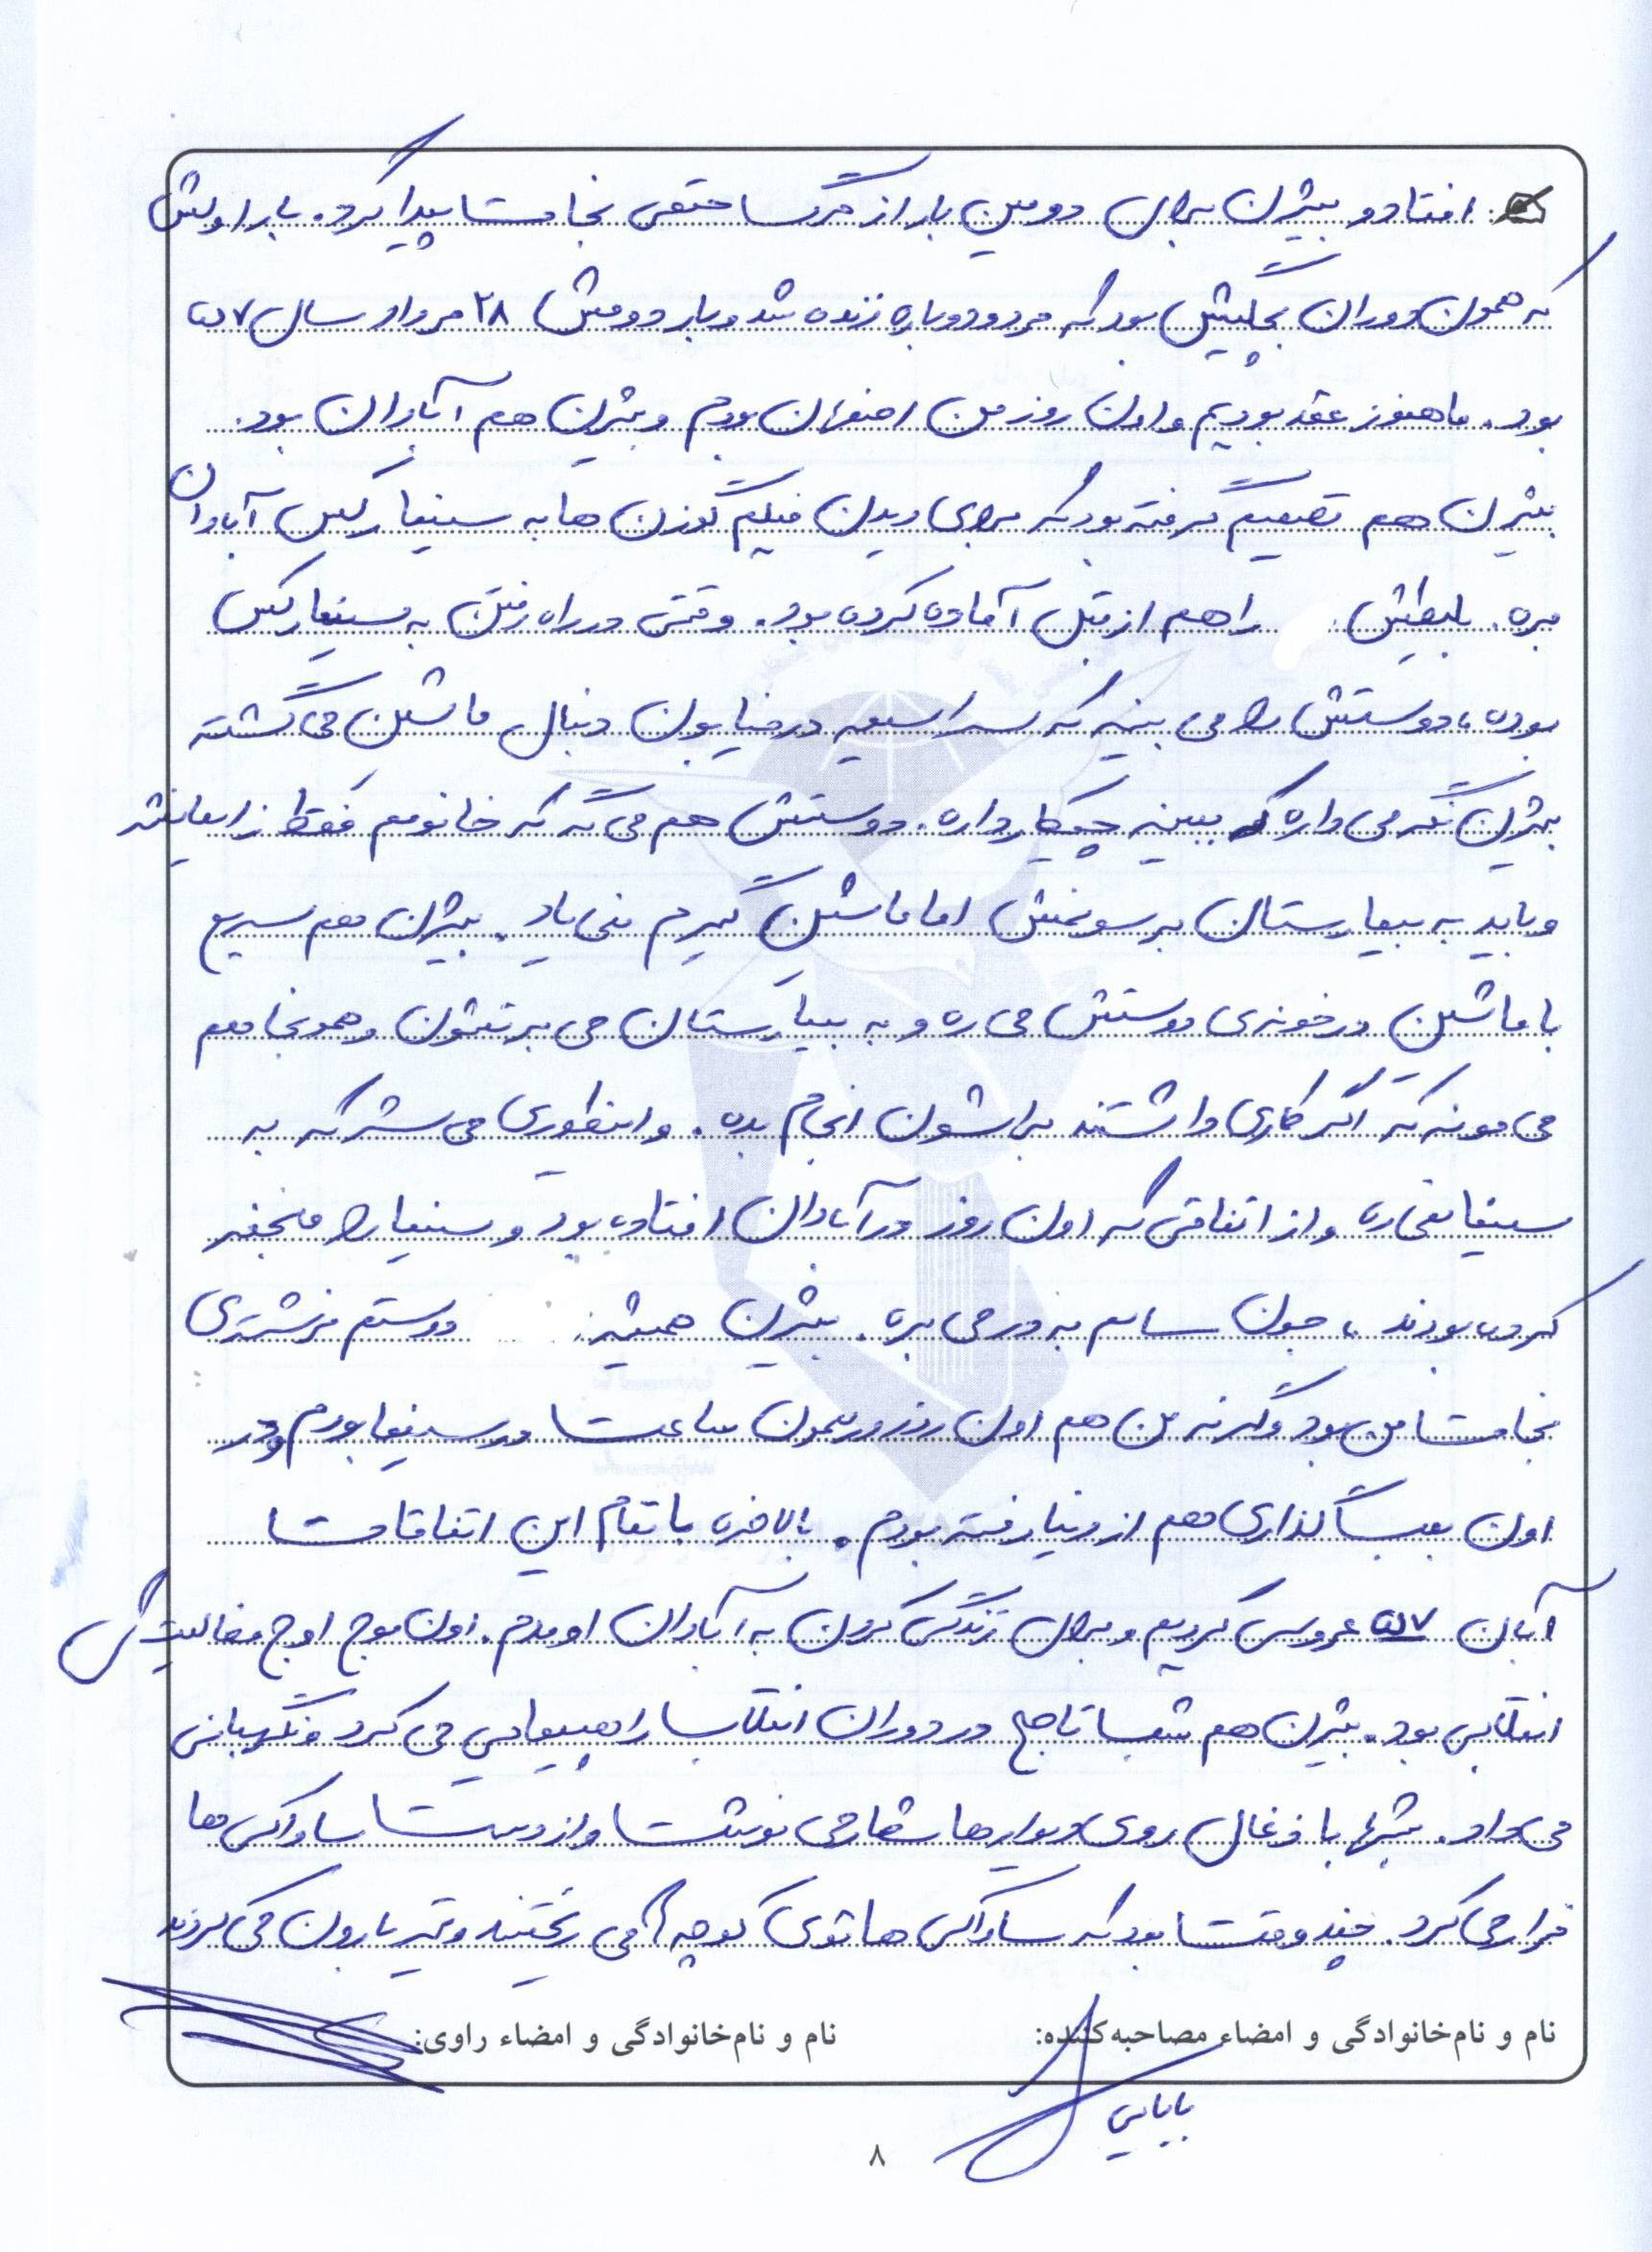 افتاد و بیژن برای دومین بار از مرگ حتمی نجات پیدا کرد. بار اولش
که همون دوران بچگیش بود که مرد و دوباره زنده شد و بار دومش ۲۸ مرداد سال ۵۷
بود. ما هنوز عقد بودیم و اون روز من اصفهان بودم و بیژن هم آبادان بود.
بیژن هم تصمیم گرفته بود که برای دیدن فیلم گوزن ها به سینما رکس آبادان
بره. بلیطش را هم از قبل آماده کرده بود. وقتی در راه رفتن به سینما رکس
بوده، دوستش را می بینه که سراسیمه در خیابون دنبال ماشین می گشته
بیژن نگه می داره که ببینه چیکار داره. دوستش هم می گه که خانومم فقط زایمانشه
و باید به بیمارستان برسونمش اما ماشین گیرم نمی یاد. بیژن هم سریع
با ماشین در خونه ی دوستش می ره و به بیمارستان می برتشون و همونجا هم
می مونه که اگر کاری داشتند براشون انجام بده. و اینطوری می شه که به
سینما نمی ره و از اتفاقی که اون روز در آبادان افتاده بود و سینما را منفجر
کرده بودند، جون سالم به در می بره. بیژن همیشه دوستم فرشته ی
نجات من بود وگرنه من هم اون روز در همون ساعت در سینما بودم و در
اون بمب گذاری هم از دنیا رفته بودم. بالاخره با تمام این اتفاقات
آبان ۵۷ عروسی کردیم و برای زندگی کردن به آبادان اومدم. اون موج اوج فعالیت های
انقلابی بود. بیژن هم شب تا صبح در دوران انقلاب راهپیمایی می کرد و نگهبانی
می داد. شبها با ذغال روی دیوارها شعار می نوشت و از دست ساواکی ها
فرار می کرد. چند وقت بود که ساواکی ها توی کوچه ها می ریختند و تیربارون می کردند
نام و نام‌خانوادگی و امضاء مصاحبه‌کننده: نام و نام‌خانوادگی و امضاء راوی:
بابایی
۸